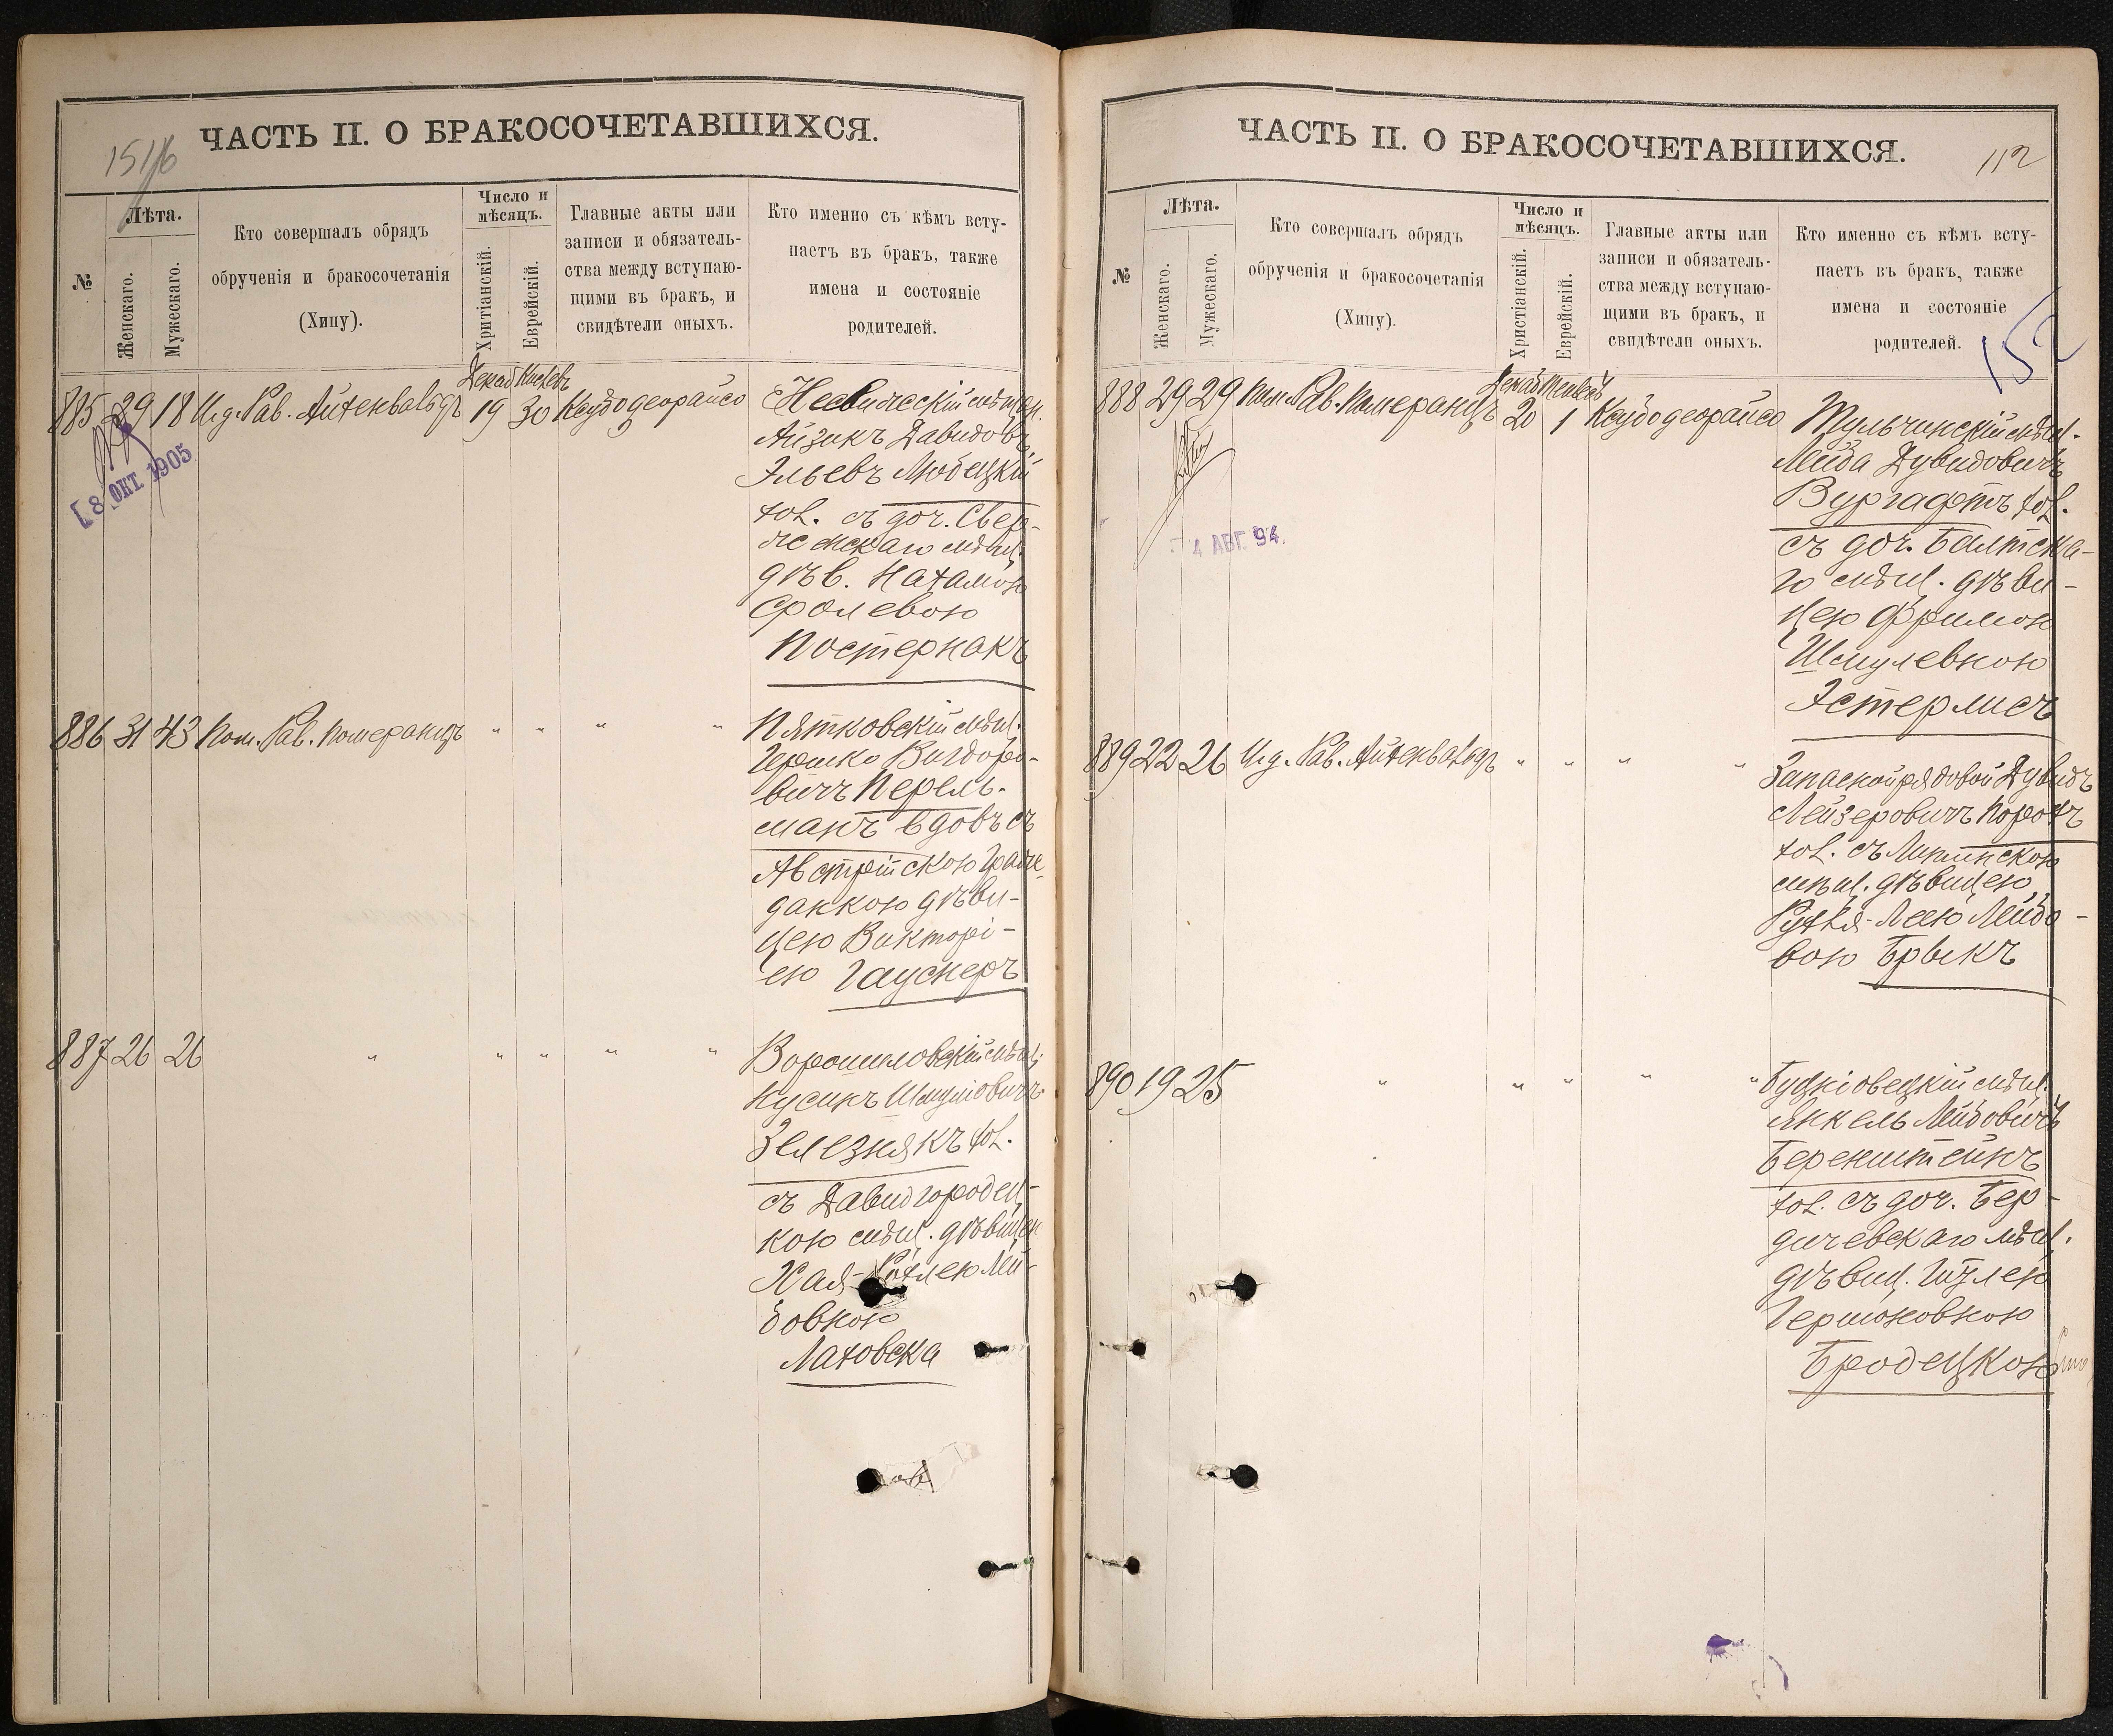 ЧАСТЬ II. О БРАКОСОЧЕТАВШИХСЯ.
№
Лѣта.
Женскаго.
Мужескаго.
Кто совершалъ обрядъ
обрученія и бракосочетанія
(Хипу).
Число и
мѣсяцъ.
Хритіанскій.
Еврейскій.
Главные акты или
записи и обязатель-
ства между вступаю-
щими въ бракъ, и
свидѣтели оныхъ.
Кто именно съ кѣмъ всту-
паетъ въ бракъ, также
имена и состояніе
родителей.
Декаб Кислевъ
885 29 18 Ид. Рав. Айхенвальдъ 19 30 Ксубо деорайсо
8 ОКТ. 1905
Несвижскій мѣщан.
Айзикъ Давидовъ
Эльевъ Любецкій
хол. съ доч. Свер-
женскаго мѣщ.
дѣв. Нахамою
Сролевою
Постернакъ
886 31 43 Пом. Рав. Померанцъ " " " "
Пятковскій мѣщ.
Гершко Вигдоро-
вичъ Перель-
манъ вдовъ съ
Австрійскою Граж-
данкою дѣви-
цею Викторі-
ею Гауснеръ
887 26 26 " " " " "
Ворошиловскій мѣщ.
Нусинъ Шмулiовичъ
Зелезнякъ хол.
съ Давидгородец-
кою мѣщ. дѣвицею
Хая- Лей-
бовною
Лаховска
ЧАСТЬ II. О БРАКОСОЧЕТАВШИХСЯ.
112
152
№
Лѣта.
Женскаго.
Мужескаго.
Кто совершалъ обрядъ
обрученія и бракосочетанія
(Хипу).
Число и
мѣсяцъ.
Христіанскій.
Еврейскій.
Главные акты или
записи и обязатель-
ства между вступаю-
щими въ бракъ, и
свидѣтели оныхъ.
Кто именно съ кѣмъ всту-
паетъ въ бракъ, также
имена и состояніе
родителей.
Декаб Тейвесъ
888 29 29 Пом. Рав. Померанцъ 20 1 Ксубо деорайсо
4 АВГ. 94.
Тульчинскій мѣщ.
Лейба Дувидовичъ
Вургафтъ хол.
съ доч. Балтска-
го мѣщ. дѣви-
цею Фримою
Шмулевною
Эстерлисъ
889 22 26 Ид. Рав. Айхенвальдъ " " " "
Запасной рядовой Дувидъ
Лейзеровичъ Порохъ
хол. съ Липинскою
мѣщ. дѣвицею
Рухля-Леею Лейбо-
вою Брыкъ
890 19 25 " " " " "
мѣщ.
Янкель Лейбовичъ
Беренштейнъ
хол. съ доч. Бер-
дичевскаго мѣщ.
дѣвиц. Гитлею
Гершоновною
Бродецкою